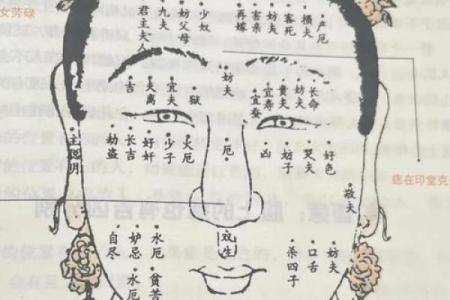 女劳碌
君主夫人
九夫
妨父母
少奴
再嫁
害亲
妨夫
客死
横夫
产厄
吉
夫离
宜夫
狱
妨夫
宜蚕
宜寿
贵夫
妨夫
长命
主聪明
劫盗
长吉
好奸
少子
火厄
厄
凶
妨子
哭夫
好色
痣在印堂克
自尽
妒忌
水厄
水厄
贫苦
双生
杀四子
口舌
妨夫